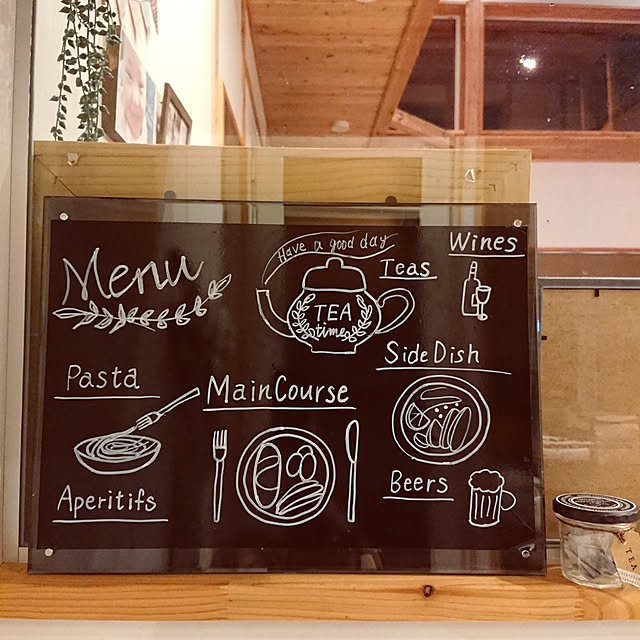 Menu
Have a good day
TEA
time
Teas
Wines
Pasta
MainCourse
SideDish
Aperitifs
Beers
TEA